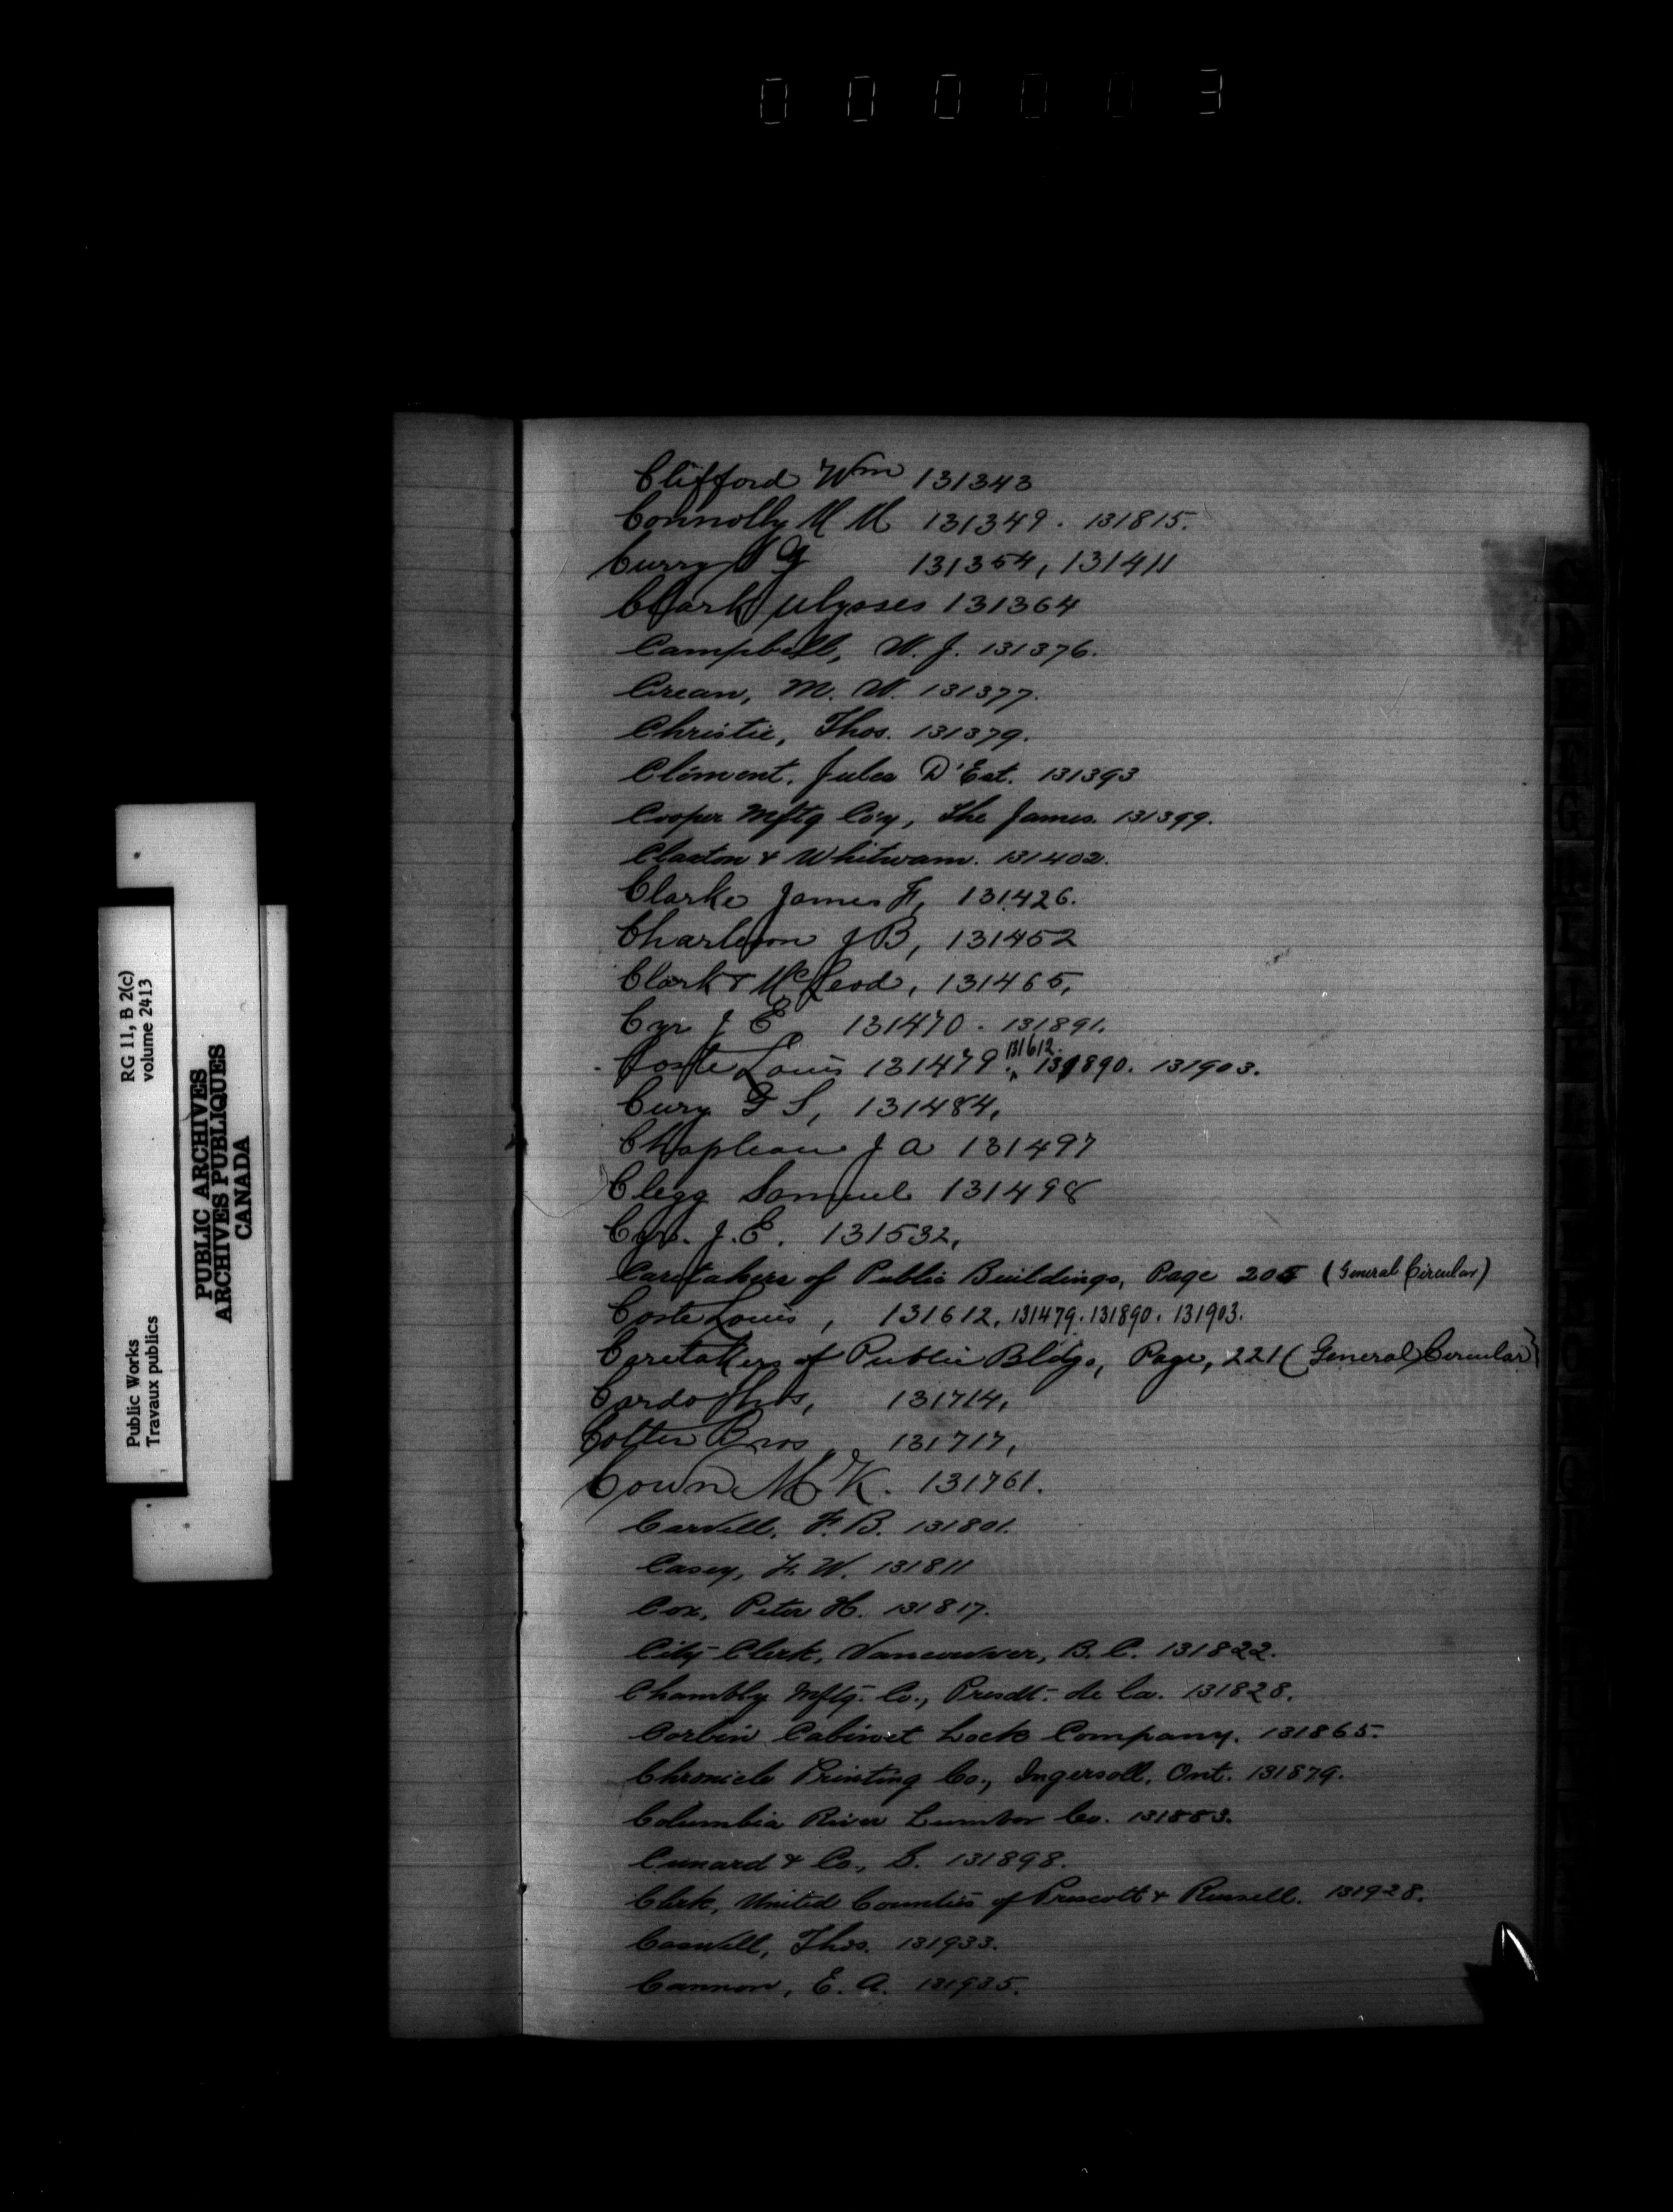 0 0 0 0 0 3
Clifford Wm 131343
Connolly M M 131349. 131815.
Curry G 131354, 131411
Clark Ulysses 131364
Campbell, W. J. 131376.
Crean, M. W. 131377.
Christie, Thos. 131379.
Clément, Jules D'Est. 131393
Cooper Mftg Coy, The James. 131399.
Claxton & Whitwam. 131402.
Clarke James F, 131426.
Charleson J B, 131452
Clark & McLeod, 131465,
Cyr J E 131470. 131891.
131612.
Coste Louis 131479. 131890. 131903.
Cury G S, 131484,
Chapleau J A 131497
Clegg Samuel 131498
Cyr. J. E. 131532,
Caretakers of Public Buildings, Page 205 (General Circular)
Coste Louis, 131612, 131479. 131890. 131903.
Caretakers of Public Bldgs, Page, 221 (General Circular)
Cardo Thos, 131714,
Cotter Bros, 131717,
Cown M. K. 131761.
Carvell, F. B. 131801.
Casey, F. W. 131811
Cox, Peter H. 131817.
City Clerk, Vancouver, B. C. 131822.
Chambly Mftg. Co., Presdt. de la. 131828.
Corbin Cabinet Lock Company. 131865.
Chronicle Printing Co., Ingersoll, Ont. 131879.
Columbia River Lumber Co. 131883.
Cunard & Co., S. 131898.
Clerk, United Counties of Prescott & Russell. 131928.
Caswell, Thos. 131933.
Cannon, E. A. 131935.
RG 11, B 2(c)
volume 2413
Public Works
Travaux publics
PUBLIC ARCHIVES
ARCHIVES PUBLIQUES
CANADA